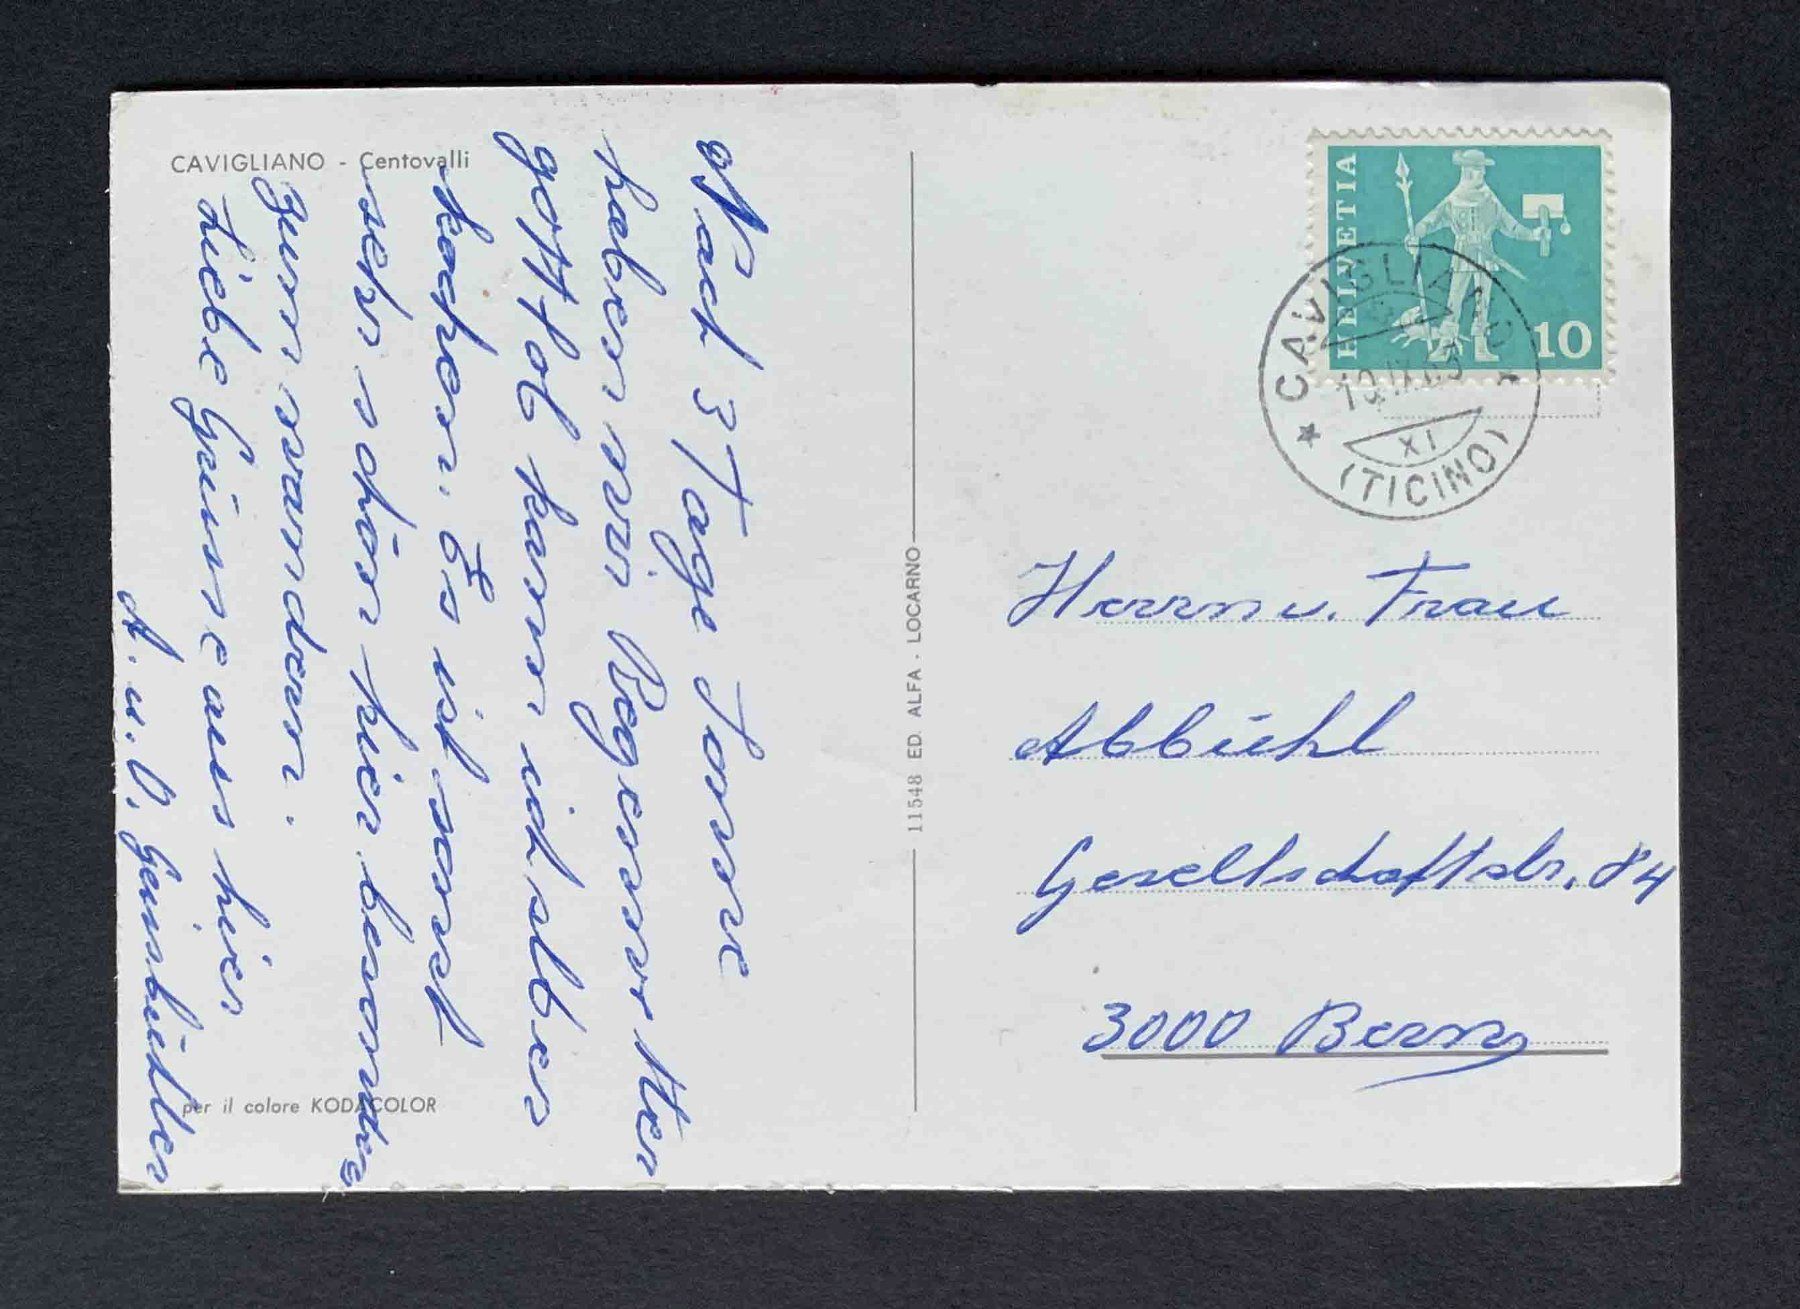 CAVIGLIANO - Centovalli
Nach 3 Tage Sonne
haben wir Regenwetter
gottlob kann ich selber
kochen. Es ist sonst
sehr schön hier besonders
zum wandern.
Liebe Grüsse aus hier
A. u. O. Geissbühler
per il colore KODACOLOR
11548 ED. ALFA - LOCARNO
HELVETIA
10
CAVIGLIANO
10.IX.65
XI
(TICINO)
Herrn u. Frau
Abbühl
Gesellschaftstr. 84
3000 Bern